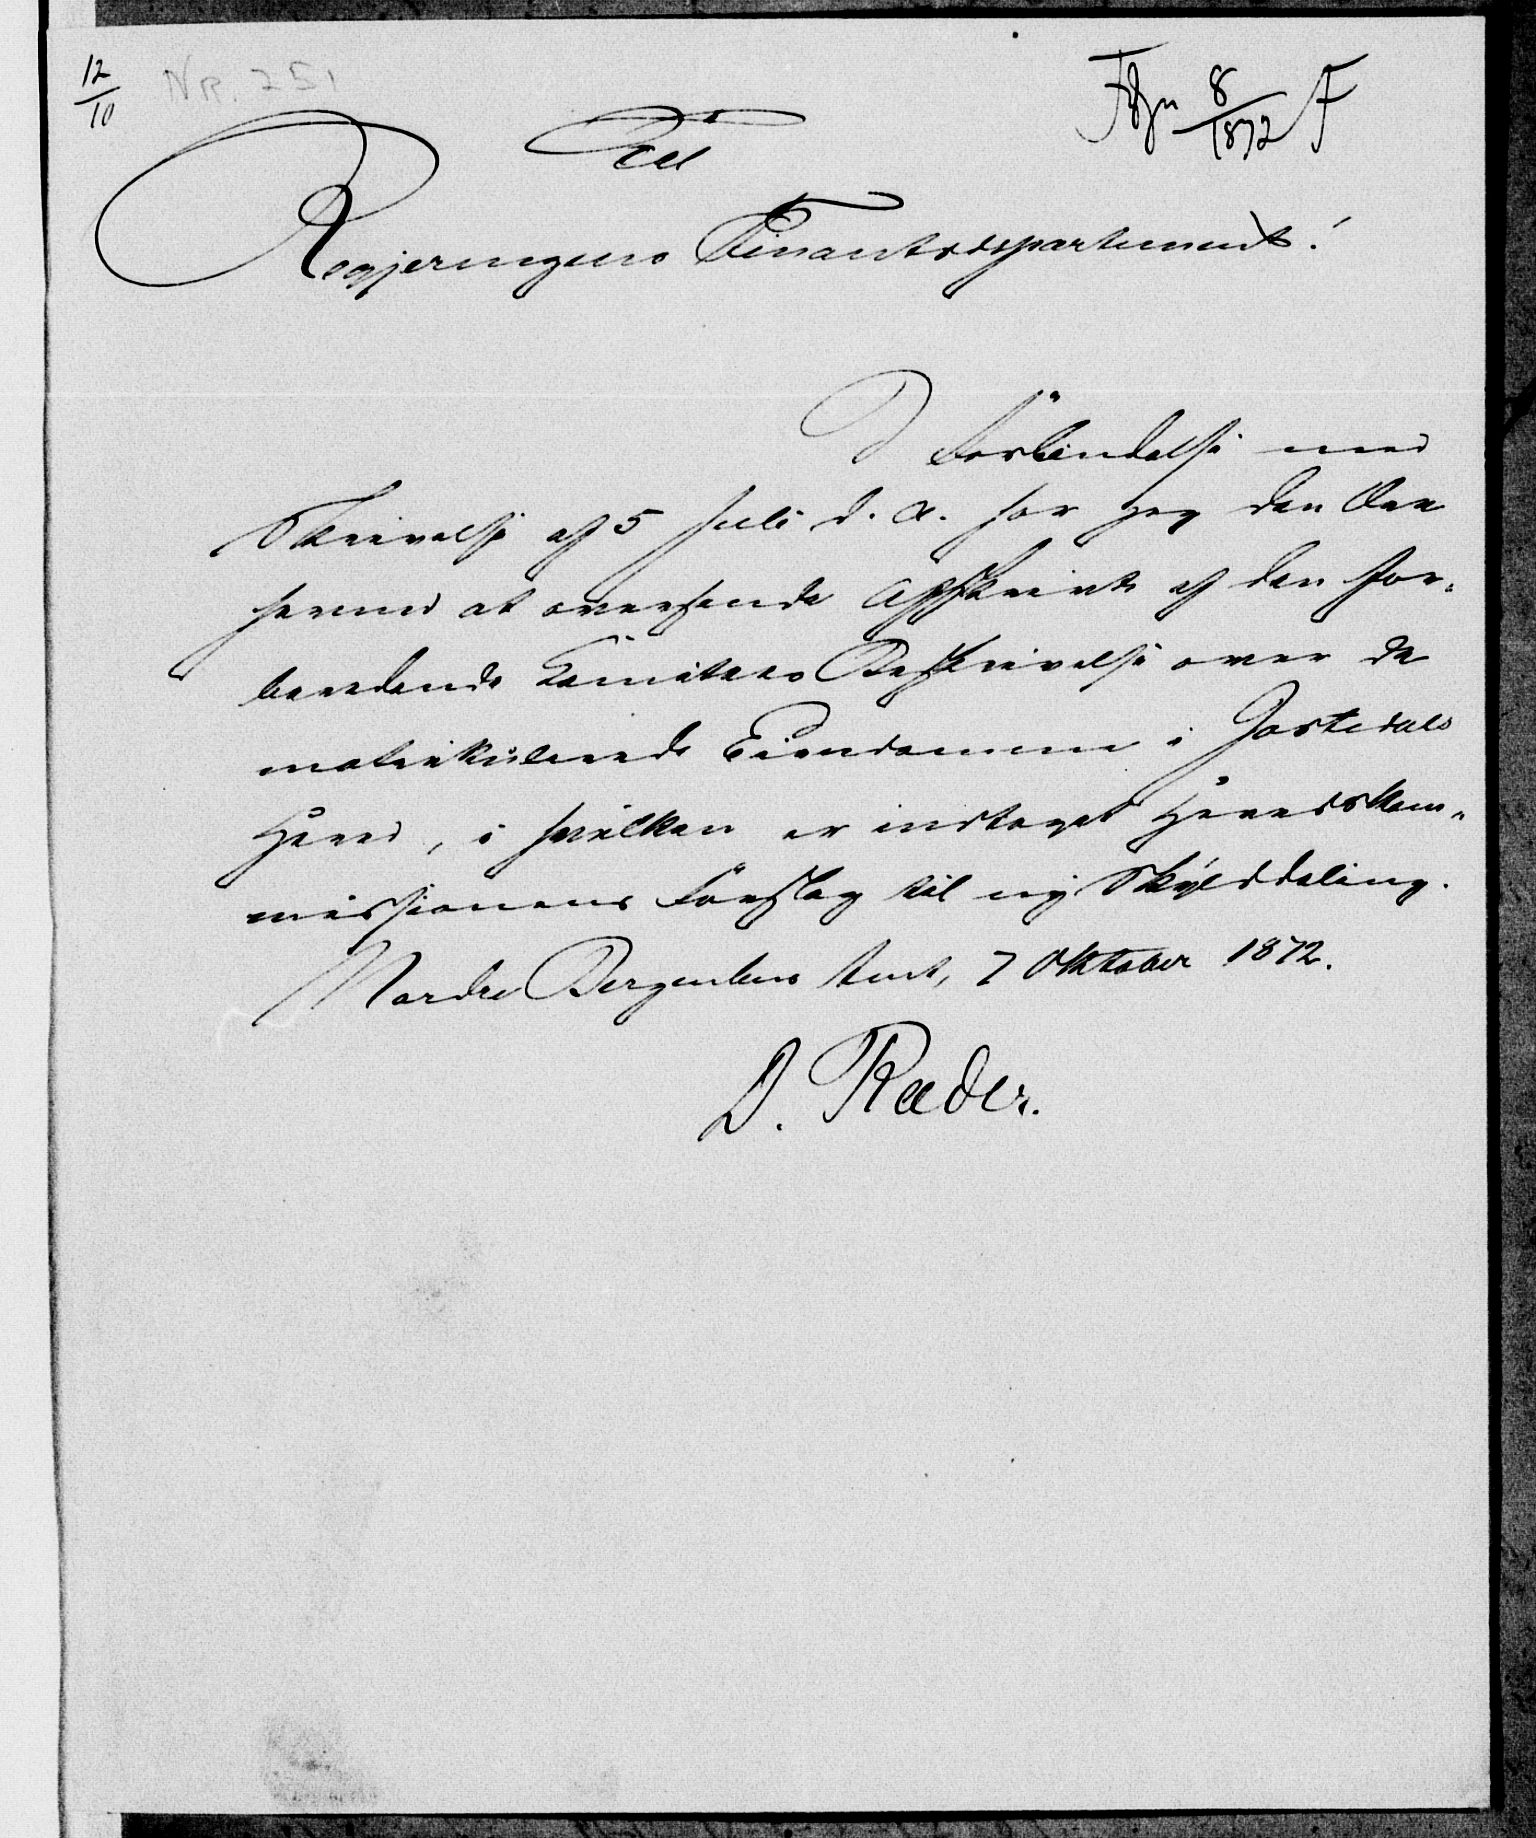 12/10
NR. 251
8/1872 F
Til
Regjeringens Finantsdepartement!
I Forbindelse med
Skrivelse af 5 Juli d. A. har jeg den Ære
hermed at oversende Afskrivt af den for-
beredende Komitees Beskrivelse over de
matrikulerede Eiendomme i Jostedals
Hered, i hvilken er indtaget Heredskom-
missionens Forslag til ny Skylddeling.
Nordre Bergenhus Amt, 7 Oktober 1872.
D. Ræder.